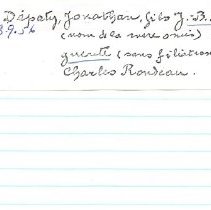 Dépaty, Jonathan, fils J.-B.
3.9.56 (nom de la mère omis)
(sans filiation
Charles Rondeau.